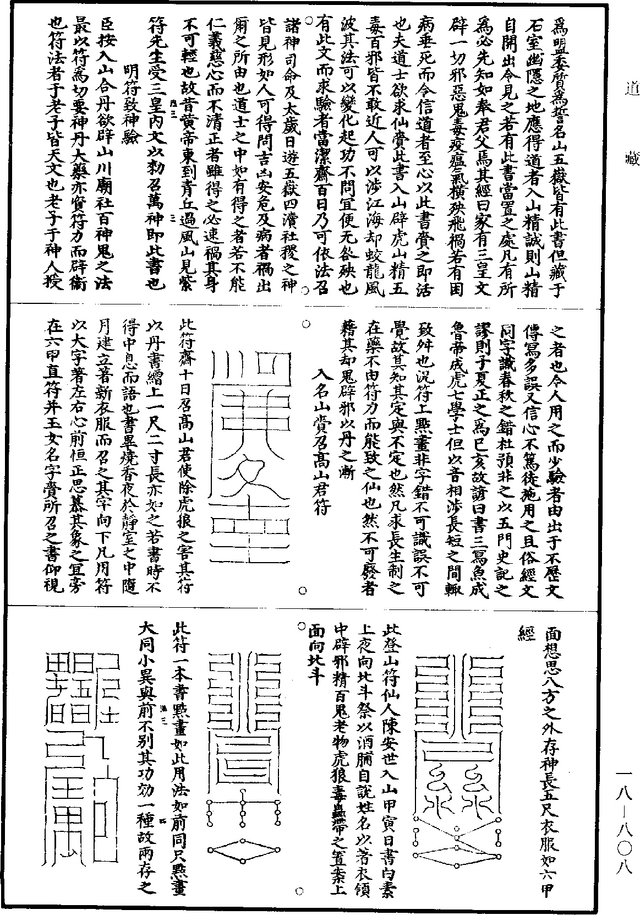 道藏
為盟委質為誓名山五嶽皆有此書但藏于
石室幽隱之地應得道者入山精誠則山精
自開出令見之若有此書當置之處凡有所
為必先知如奉君父焉其經曰家有三皇文
辟一切邪惡鬼毒疫瘟氣橫殃飛禍若有困
病垂死而令信道者至心以此書賫之即活
也夫道士欲求仙賫此書入山辟虎山精五
毒百邪皆不敢近人可以涉江海却蛟龍風
波其法可以變化起功不問宜便无咎殃也
有此文而求驗者當潔齋百日乃可依法召
諸神司命及太歲日遊五嶽四瀆社稷之神
皆見形如人可得問吉凶安危及病者禍出
爾之所由也道士之中如有得之者若不能
仁義慈心而不清正者雖得之必速禍其身
不可輕也故昔黄帝東到青丘過風山見紫
符先生受三皇内文以劾召萬神即此書也
明符致神驗
臣按入山合丹欲辟山川廟社百神鬼之法
最以符為切要神丹大藥亦實符力而辟衛
也符法者于老子皆天文也老子于神人授
之者也今人用之而少驗者由出于不歷文
傳寫多誤又信心不篤徒施用之且俗經文
同字識春秋之錯杜預非之以五門史記之
謬則于夏正之為已亥故諺曰書三寫魚成
魯帝成虎七學士但以音相涉長短之間輒
致舛也况符上點畫非字錯不可識誤不可
覺故其知其定與不定也然凡求長生制之
在藥不由符力而能致之仙也然不可廢者
藉其却鬼辟邪以丹之漸
入名山賫召高山君符
此符齋十日召高山君使除虎狼之害其符
以丹書繒上一尺二寸長亦如之若書時不
得中息而語也書畢燒香夜於靜室之中隨
月建立著新衣服而召之其字向下凡用符
以大字著左右心前恒正思慕其象之宜旁
在六甲直符并玉女名字賫所召之書仰視
面想思八方之外存神長五尺衣服如六甲
經
此登山符仙人陳安世入山甲寅日書白素
上夜向北斗祭以酒脯自説姓名以著衣領
中辟邪精百鬼老物虎狼毒蟲帶之置案上
面向北斗
此符一本書點畫如此用法如前同只點畫
大同小異與前不别其功効一種故兩存之
一八―八〇八